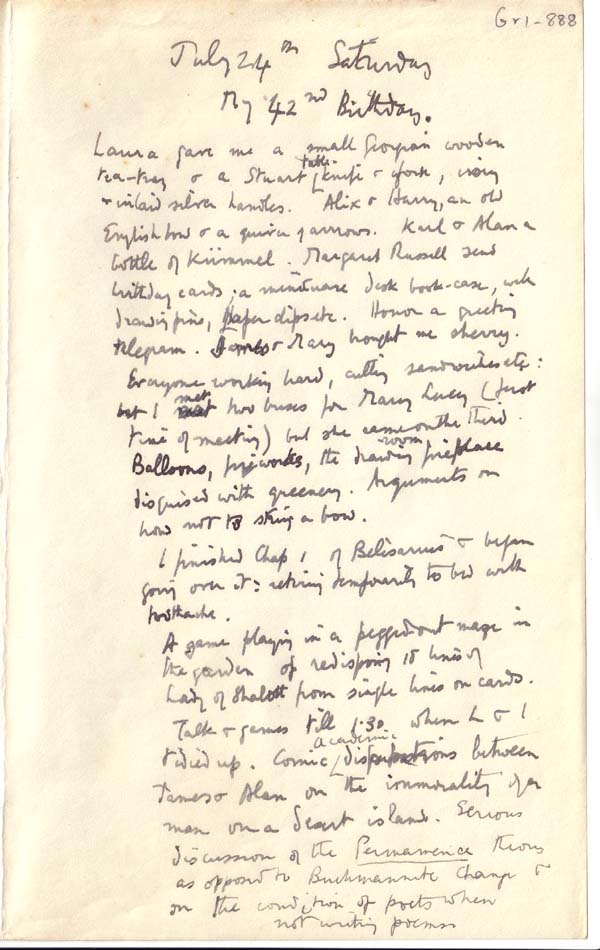 Gr1-888
July 24th Saturday
My 42nd Birthday.
Laura gave me a small Georgian wooden
tea-tray & a Stuart table knife & fork, ivory
& inlaid silver handles. Alix & Harry, an old
English bow & a quiver of arrows. Karl & Alan a
bottle of Kümmel. Margaret Russell send
birthday cards; a miniature desk book-case, with
drawing pins, paper clips etc. Honor a greeting
telegram. James & Mary brought me sherry.
Everyone working hard, cutting sandwiches etc:
but I met two buses for Mary Lucy (first
time of meeting) but she came on the third.
Balloons, fireworks, the drawing room fireplace
disguised with greenery. Arguments on
how not to string a bow.
I finished Chap 1 of Belisarius & began
going over it: retiring temporarily to bed with
toothache.
A game playing in a pegged-out maze in
the garden of redisposing 18 lines of
Lady of Shalott from single lines on cards.
Talk & games till 1.30 when L & I
tidied up. Comic academic disputations between
James & Alan on the immorality of a
man on a desert island. Serious
discussion of the Permanence theory
as opposed to Buchmannite Change &
on the condition of poets when
not writing poems